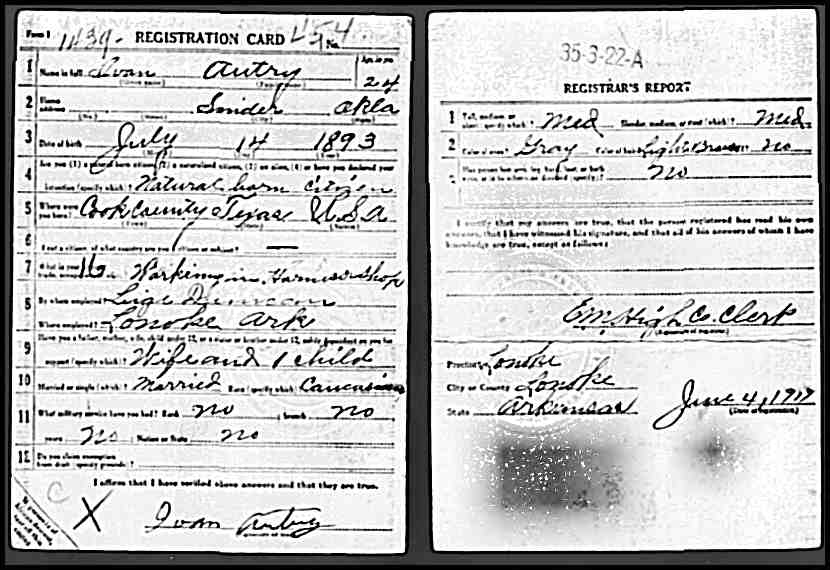 Form 1 1439- REGISTRATION CARD 454 No.
1 Name in full Ivan Autry Age, in yrs. 24
2 Home address Snider Okla
(No.) (Street) (City) (State)
3 Date of birth July 14 1893
(Month) (Day) (Year)
4 Are you (1) a natural born citizen, (2) a naturalized citizen, (3) an alien, (4) or have you declared your
intention (specify which)? Natural born citizen
5 Where were you born? Cook County Texas USA
(Town) (State) (Nation)
6 If not a citizen, of what country are you a citizen or subject? —
7 What is your 16 Working in Harness shop
8 By whom employed? Lige Duncan
Where employed? Lonoke Ark
9 Have you a father, mother, wife, child under 12, or a sister or brother under 12, solely dependent on you for
support (specify which)? Wife and 1 child
10 Married or single (which)? Married Race (specify which)? Caucasian
11 What military service have you had? Rank no ; branch no
years no ; Nation or State no
12 Do you claim exemption from draft (specify grounds)?
I affirm that I have verified above answers and that they are true.
C X Ivan Autry
35-3-22-A
REGISTRAR'S REPORT
1 Tall, medium, or short (specify which)? Med Slender, medium, or stout (which)? Med.
2 Color of eyes? Gray Color of hair? Light Brown Bald? No
3 Has person lost arm, leg, hand, foot, or both
eyes, or is he otherwise disabled (specify)? No
I certify that my answers are true, that the person registered has read his own
answers, that I have witnessed his signature, and that all of his answers of which I have
knowledge are true, except as follows:
E M High Co. Clerk
(Signature of registrar)
Precinct Lonoke
City or County Lonoke
State Arkansas June 4, 1917
(Date of registration)